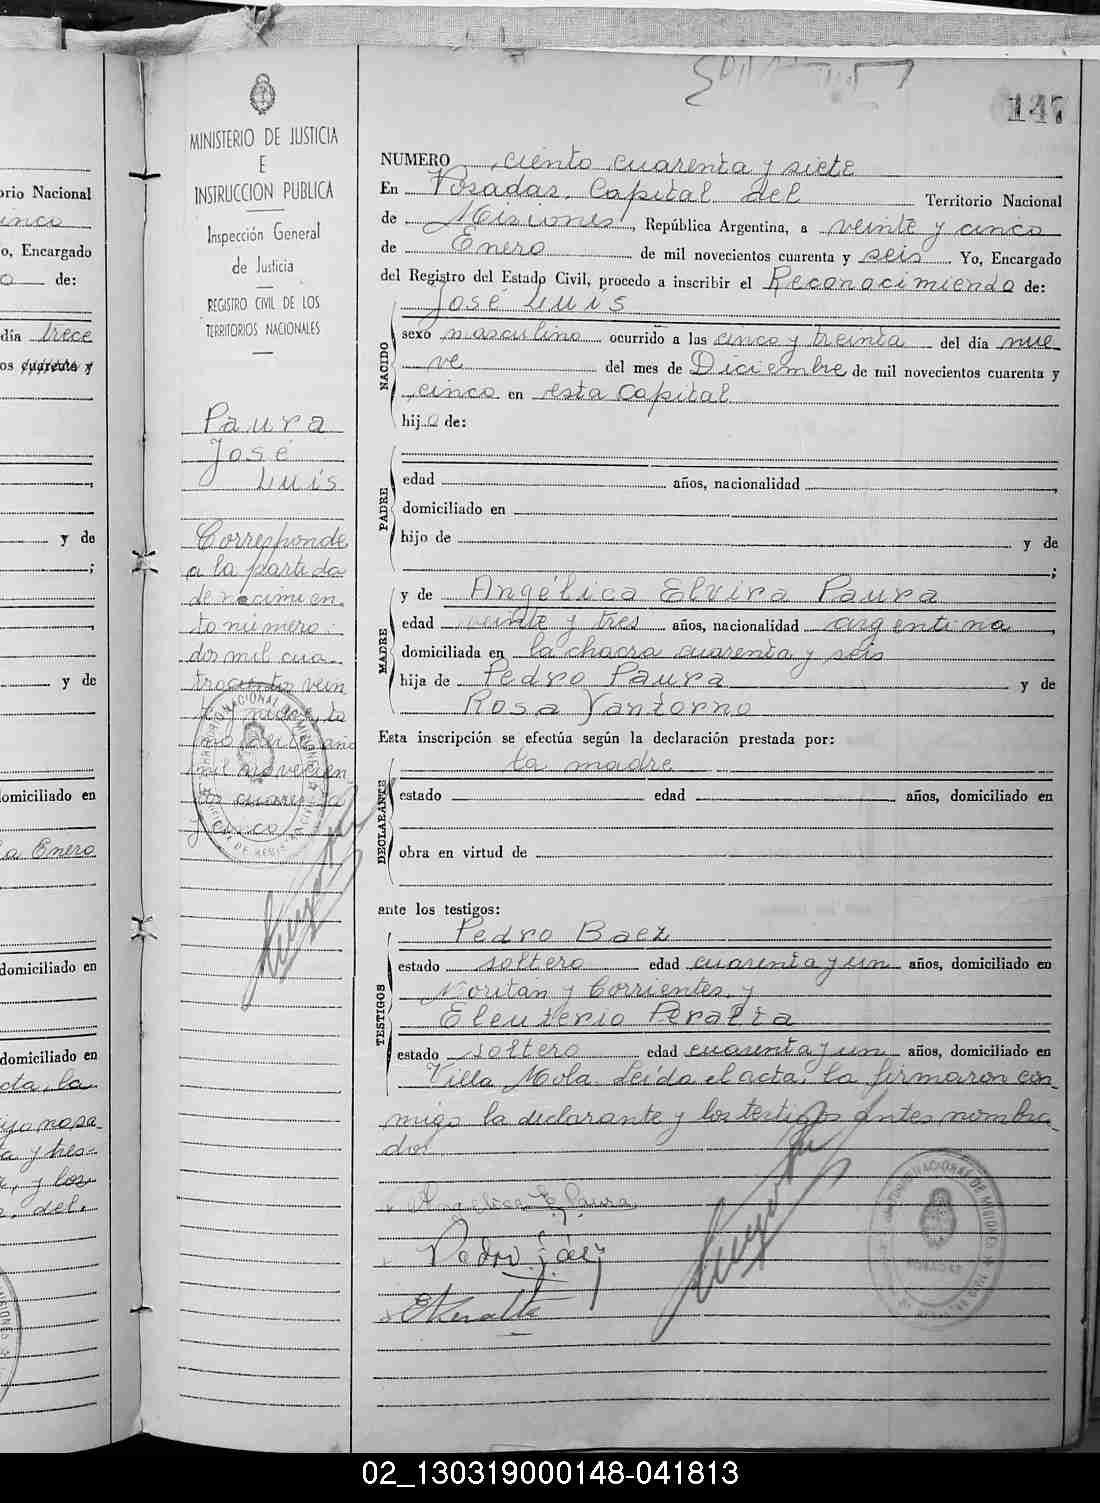 147
MINISTERIO DE JUSTICIA
E
INSTRUCCION PUBLICA
Inspección General
de Justicia
REGISTRO CIVIL DE LOS
TERRITORIOS NACIONALES
Paura
José
Luis
Corresponde
a la partida
de nacimien
to número
dos mil cua
trocientos vein
mil novecien
tos cuarenta
y cinco
NUMERO ciento cuarenta y siete
En Posadas, Capital del Territorio Nacional
de Misiones, República Argentina, a veinte y cinco
de Enero de mil novecientos cuarenta y seis Yo, Encargado
del Registro del Estado Civil, procedo a inscribir el Reconocimiendo de:
José Luis
NACIDO
sexo masculino ocurrido a las cinco y treinta del día nue
ve del mes de Diciembre de mil novecientos cuarenta y
cinco en esta Capital
hijo de:
PADRE
edad años, nacionalidad ,
domiciliado en
hijo de y de
;
MADRE
y de Angélica Elvira Paura
edad veinte y tres años, nacionalidad argentina,
domiciliada en la chacra cuarenta y seis
hija de Pedro Paura y de
Rosa Yantorno
Esta inscripción se efectúa según la declaración prestada por:
DECLARANTE
la madre
estado edad años, domiciliado en
obra en virtud de
ante los testigos:
TESTIGOS
Pedro Baez
estado soltero edad cuarenta y un años, domiciliado en
Moritan y Corrientes y
Eleuterio Peralta
estado soltero edad cuarenta y un años, domiciliado en
Villa Mola. Leída el acta, la firmaron con
migo la declarante y los testigos antes nombra
dos
Angelica E. Paura
Pedro Báez
E Peralta
orio Nacional
inco
o, Encargado
o de:
día trece
os cuarenta y
y de
;
y de
domiciliado en
Enero
domiciliado en
domiciliado en
acta, la
y los
del
02_130319000148-041813